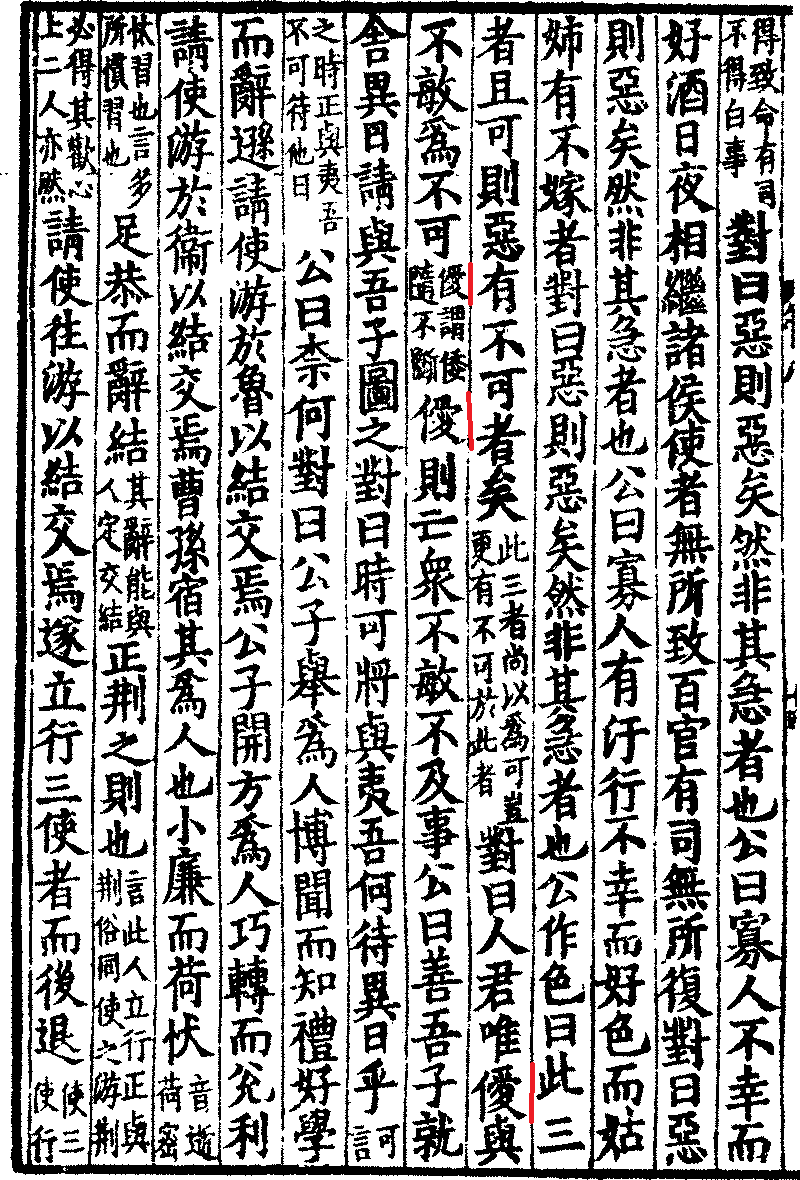 得致命有司不得白事對曰惡則惡矣然非其急者也公曰寡人不幸而
好酒日夜相繼諸侯使者無所致百官有司無所復對曰惡
則惡矣然非其急者也公曰寡人有汙行不幸而好色而姑
姊有不嫁者對曰惡則惡矣然非其急者也公作色曰此三
者且可則惡有不可者矣此三者尚以爲可豈更有不可於此者對曰人君唯優與
不敏爲不可優謂倭隨不斷優則亡衆不敏不及事公曰善吾子就
舍異日請與吾子圖之對曰時可將與夷吾何待異日乎可言
之時正與夷吾不可待他日公曰柰何對曰公子舉爲人博聞而知禮好學
而辭遜請使游於魯以結交焉公子開方爲人巧轉而兊利
請使游於衞以結交焉曹孫宿其爲人也小廉而荷忕音逝荷密
忕習也言多所慣習也足恭而辭結其辭能與人定交結正荆之則也言此人立行正與荆俗同使之游荆
必得其歡心上二人亦然請使往游以結交焉遂立行三使者而後退使三使行